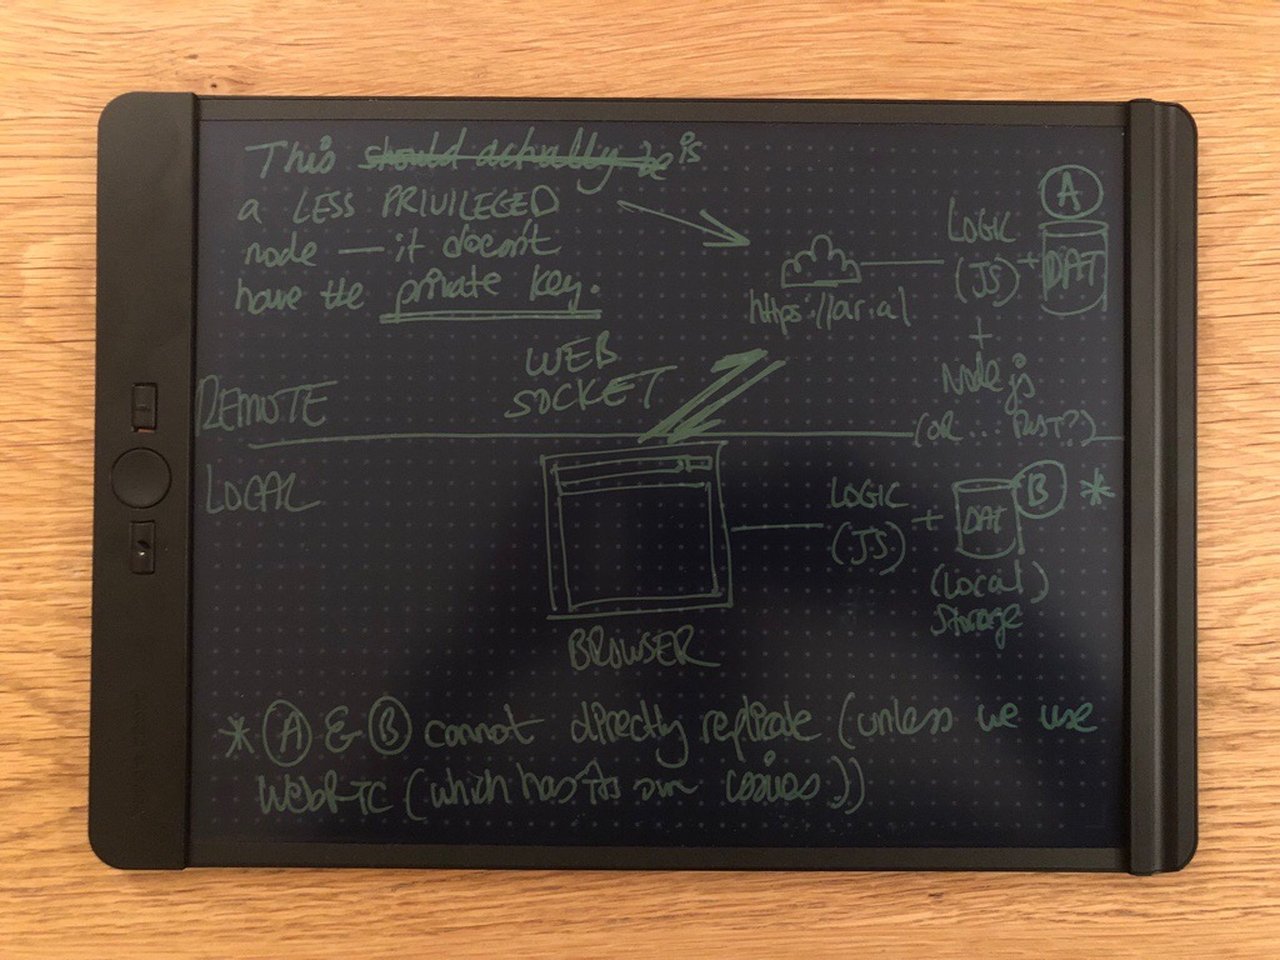 This ~~should actually be~~ is
a LESS PRIVILEGED
node — it doesn't
have the private key.
A
LOGIC
(JS) + DAT
https://ar.al
+
Node js
(OR ... RUST?)
WEB
SOCKET
REMOTE
LOCAL
LOGIC
(JS) + DAT B *
(Local)
Storage
BROWSER
* A & B cannot directly replicate (unless we use
WebRTC (which has its own issues.))